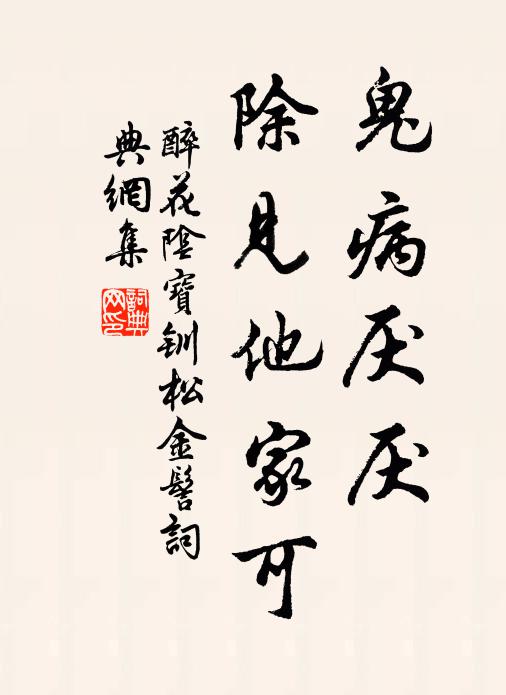 鬼病厌厌
除見他家可
醉花陰寶钏松金髻詞
典網集
詞典
网印